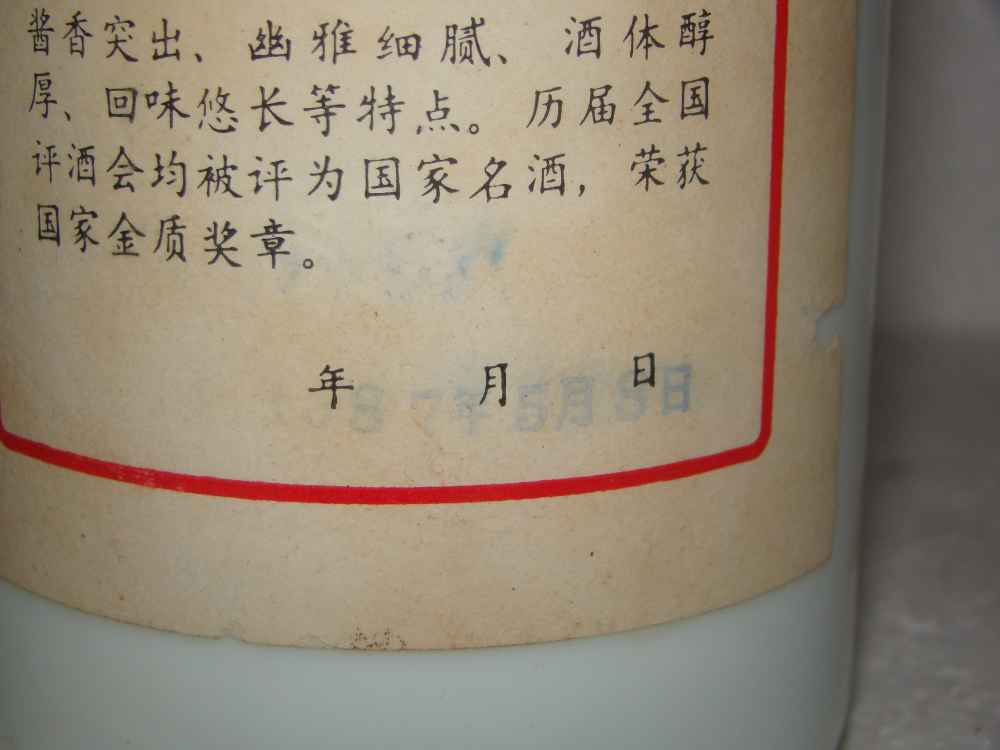 酱香突出、幽雅细腻、酒体醇
厚、回味悠长等特点。历届全国
评酒会均被评为国家名酒，荣获
国家金质奖章。
年 月 日
87年5月8日